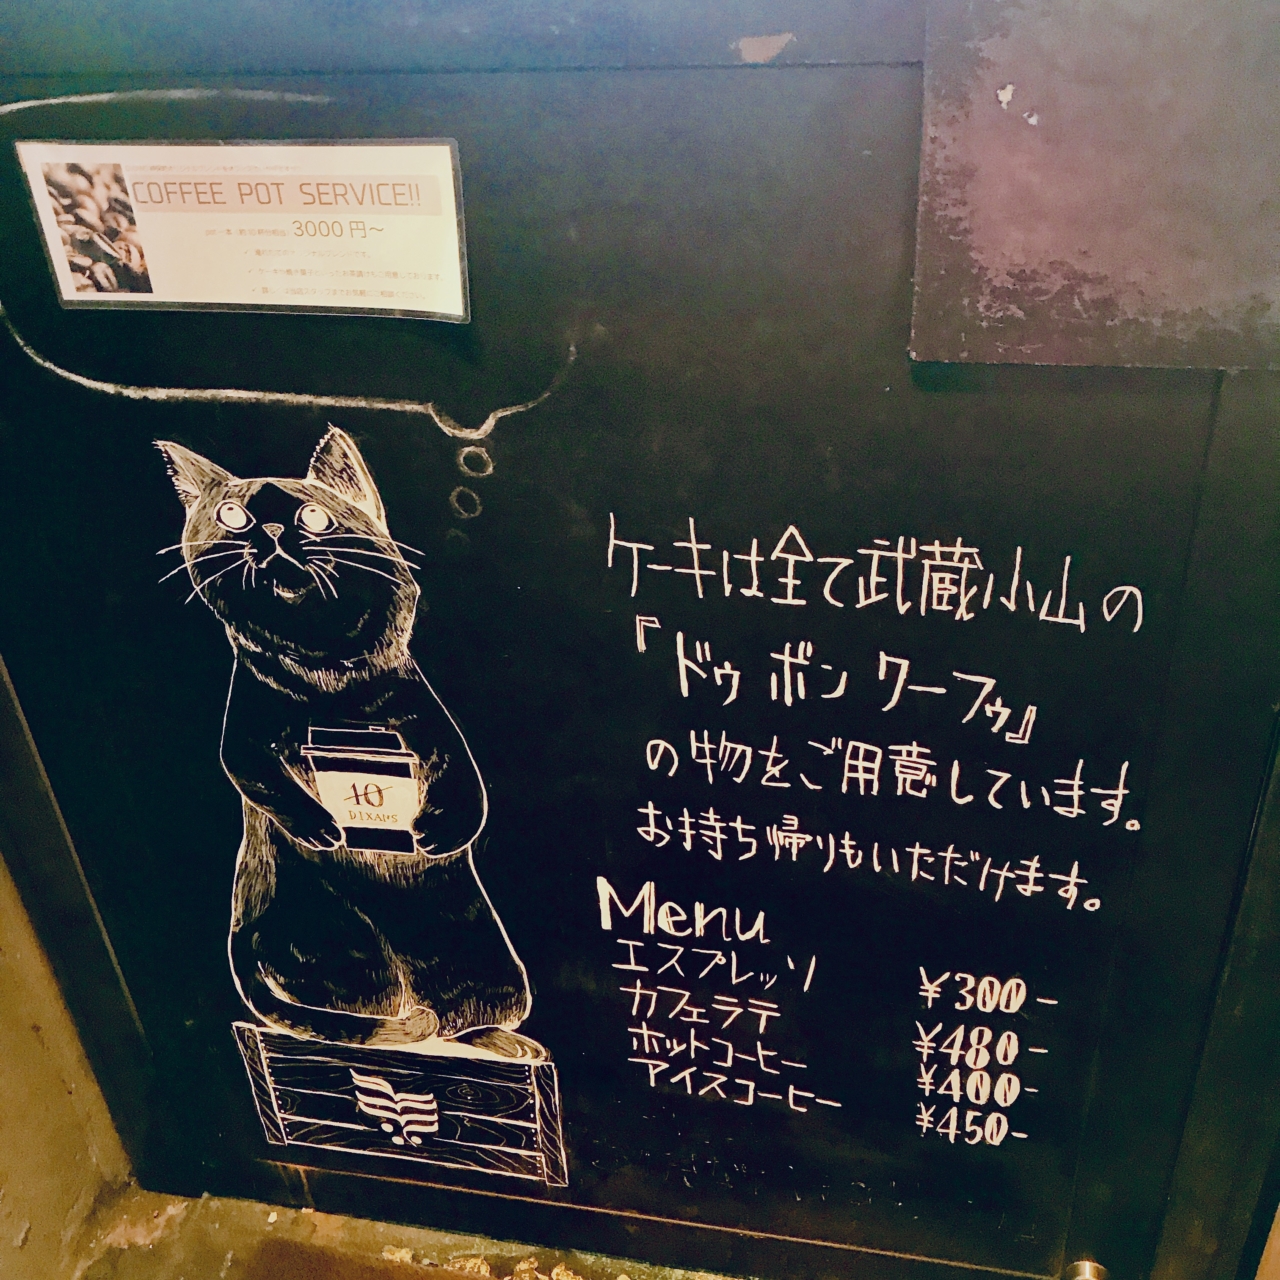 COFFEE POT SERVICE!!
3000円〜
ケーキは全て武蔵小山の
『ドゥ ボン クーフゥ』
の物をご用意しています。
お持ち帰りもいただけます。
10
DIXANS
Menu
エスプレッソ ¥300-
カフェラテ ¥480-
ホットコーヒー ¥400-
アイスコーヒー ¥450-